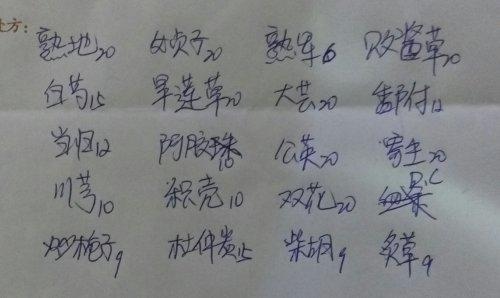 处方:
熟地20 女贞子20 熟军6 败酱草20
白芍15 旱莲草20 大芸20 香附12
当归12 阿胶珠10 公英20 寄生20
川芎10 枳壳10 双花20
炒栀子9 杜仲炭15 柴胡9 炙草9